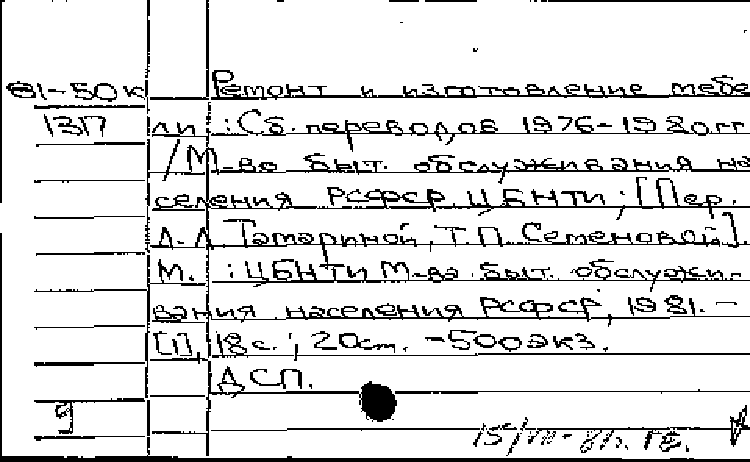 81-50к Ремонт и изготовление мебе
13П ли : Сб. переводов 1976-1980гг
/М-во быт. обслуживания на
селения РСФСР. ЦБНТИ ; [Пер.
Л.Л. Татариной, Т.П. Семеновой].
М. : ЦБНТИ М-ва быт. обслужи-
вания населения РСФСР, 1981. -
[1], 18 с. ; 20 см. - 500 экз.
ДСП.
9
15/VII-81г.